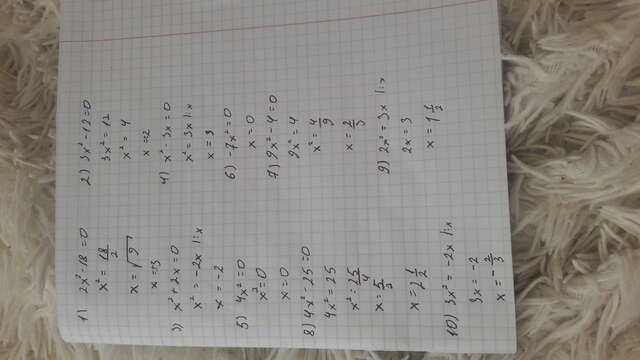 1) 2x² - 18 = 0
x² = 18/2
x = √9
x = ±3
2) 3x² - 12 = 0
3x² = 12
x² = 4
x = ±2
3) x² + 2x = 0
x² = -2x |:x
x = -2
4) x² - 3x = 0
x² = 3x |:x
x = 3
5) 4x² = 0
x² = 0
x = 0
6) -7x² = 0
x = 0
7) 9x² - 4 = 0
9x² = 4
x² = 4/9
x = 2/3
8) 4x² - 25 = 0
4x² = 25
x² = 25/4
x = 5/2
x = 2 1/2
9) 2x² = 3x |:x
2x = 3
x = 1 1/2
10) 3x² = -2x |:x
3x = -2
x = -2/3